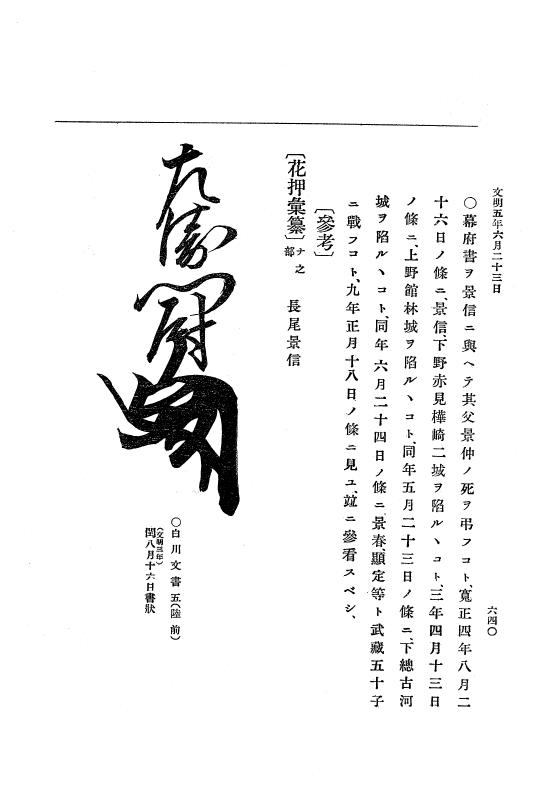 文明五年六月二十三日
六四〇
〇幕府書ヲ景信ニ與ヘテ其父景仲ノ死ヲ弔フコト、寬正四年八月二
十六日ノ條ニ、景信、下野赤見樺崎二城ヲ陷ルヽコト、三年四月十三日
ノ條ニ、上野館林城ヲ陷ルヽコト、同年五月二十三日ノ條ニ、下總古河
城ヲ陷ルヽコト、同年六月二十四日ノ條ニ景春、顯定等ト武藏五十子
ニ戰フコト、九年正月十八日ノ條ニ見ユ、竝ニ參看スベシ、
〔參考〕
〔花押彙纂〕ナ之部 長尾景信
左衞門尉
〇白川文書五(陸前)
(文明三年)
閏八月十六日書狀